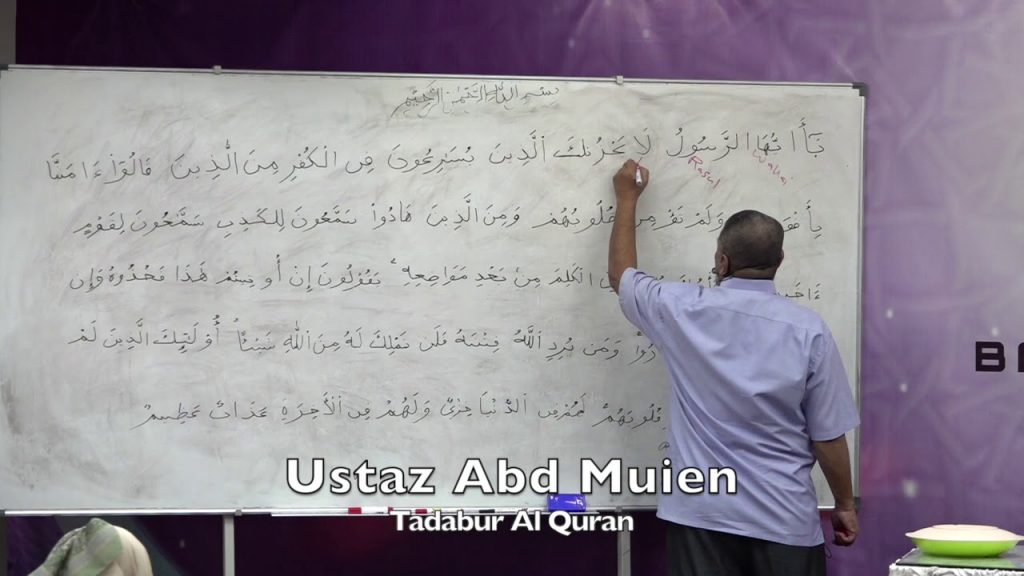 بِسْمِ اللَّهِ الرَّحْمَنِ الرَّحِيمِ
يَٓأَيُّهَا الرَّسُولُ لَا يَحْزُنكَ ٱلَّذِينَ يُسَرِعُونَ فِى الْكُفْرِ مِنَ الَّذِينَ قَالُوٓا ءَامَنَّا
Wahai Rasul
وَلَمْ تُؤْمِن قُلُوبُهُمْ وَمِنَ الَّذِينَ هَادُوا سَمَّعُونَ لِلْكَذِبِ سَمَّعُونَ لِقَوْمٍ
الْكَلِمَ مِنْ بَعْدِ مَوَاضِعِهِ يَقُولُونَ إِنْ أُوتِيتُمْ هَذَا فَخُذُوهُ وَإِن
وَمَن يُرِدِ اللَّهُ فِتْنَتَهُ فَلَن تَمْلِكَ لَهُ مِنَ اللَّهِ شَيْئًا أُوْلَئِكَ الَّذِينَ لَمْ
قُلُوبَهُمْ لَهُمْ فِى الدُّنْيَا خِزْىٌ وَلَهُمْ فِى الْأَخِرَةِ عَذَابٌ عَظِيمٌ
Ustaz Abd Muien
Tadabur Al Quran